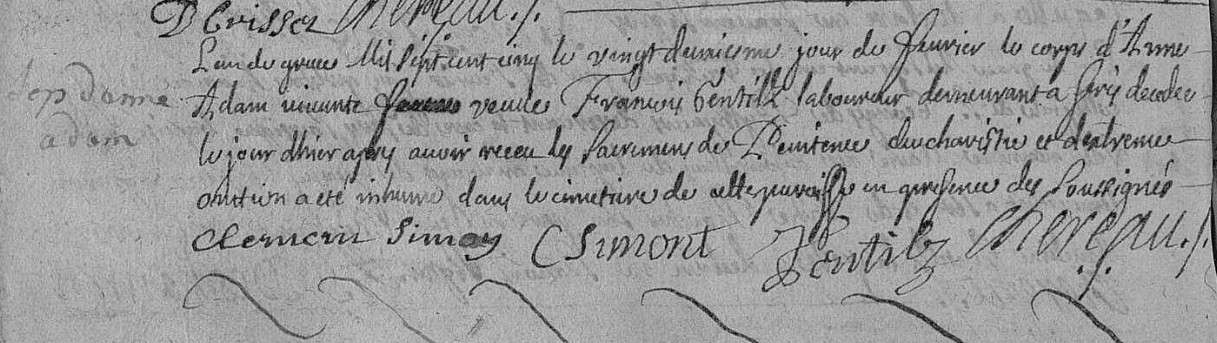 D Crisser Chereau./.
L'an de grace Mil sept cent cinq le vingt deuxiesme jour de feuvrier le corps d'Anne
Sep danne
Adam vivante veuve Francois Gentilz laboureur demeurant a decedee
adam
le jour dhier apres avoir receu les Sacremens de Penitence deucharistie et dextreme
onction a eté inhumé dans le cimetiere de cette paroisse en presence des Soussignés
Clement Simon C Simont Gentilz Chereau./.